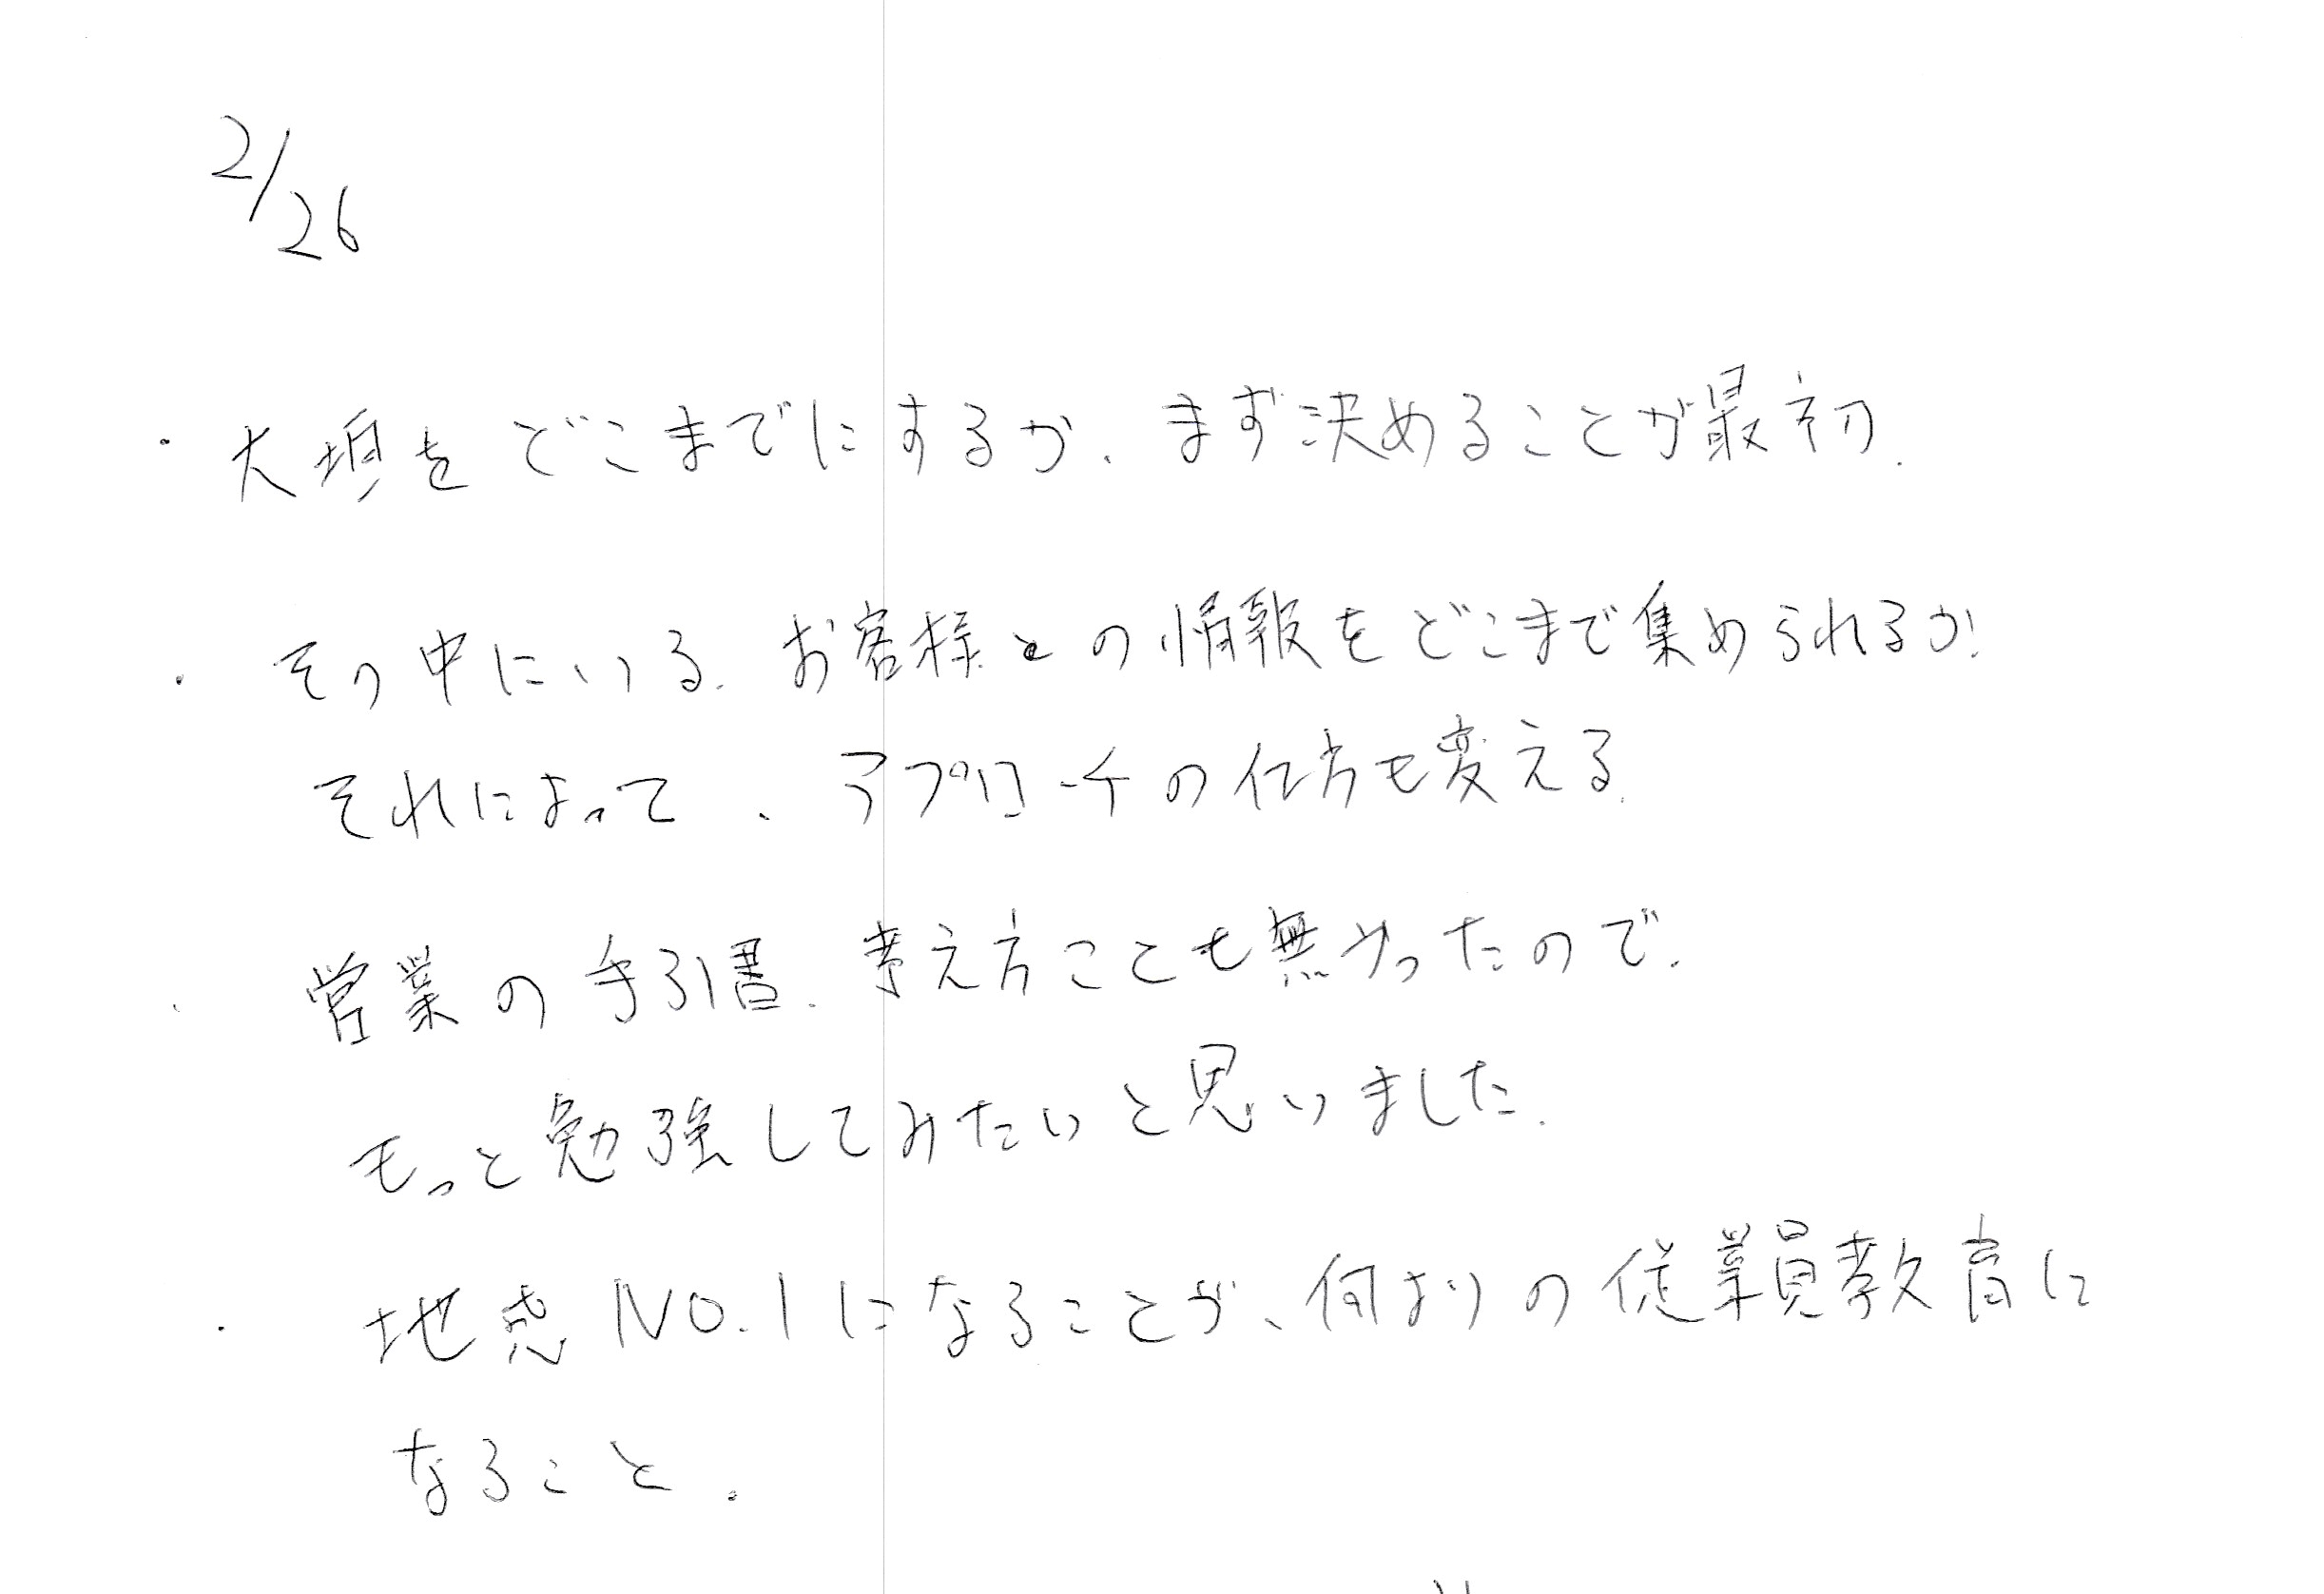 2/26
・大垣をどこまでにするか、まず決めることが最初.
・その中にいる、お客様との情報をどこまで集められるか.
それによって、アプローチの仕方も変える.
・営業の手引書、考え方ことも無かったので、
もっと勉強してみたいと思いました.
・地 NO.1になることが、何よりの従業員教育に
なること.